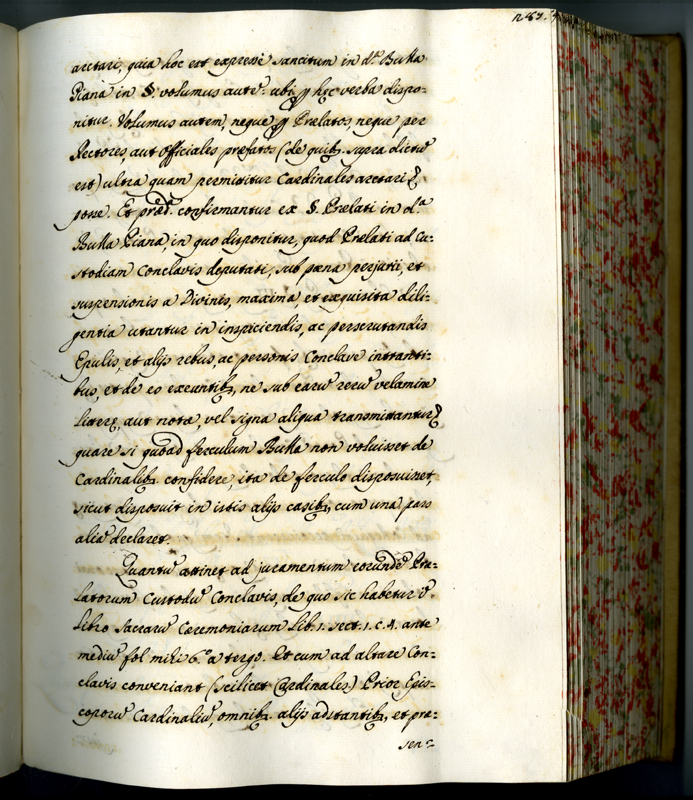 arctari, quia hoc est expresse sancitum in d.ª Bulla
Piana in §. volumus autē. ubi p hęc verba dispo-
nitur. Volumus autem, neque p Prælatos, neque per
Rectores, aut Officiales præfatos (de quib. supra dictū
est) ultra quam permittitur Cardinales arctari
posse. Et præd. confirmantur ex §. Prelati in d.ª
Bulla Piana, in quo disponitur, quod Prelati ad Cu-
stodiam Conclavis deputati, sub pœna perjurii, et
suspensionis a Divinis, maxima, et exquisita dili-
gentia utantur in inspiciendis, ac perscrutandis
Epulis, et alijs rebus, ac personis Conclave intranti-
bus, et de eo exeuntib, ne sub earū rerū velamine
litterę, aut notæ, vel signa aliqua transmittantur
quare si quoad ferculum Bulla non voluisset de
Cardinalib. confidere, ita de ferculo disposuisset,
sicut disposuit in istis alijs casib, cum una pars
aliā declaret.
Quantū attinet ad juramentum eorundē Præ-
latorum Custodū Conclavis, de quo sic habetur ī
Libro Sacrarū Ceremoniarum Lib. 1. sect. 1. c. 4. ante
mediū fol mihi 6.º a tergo. Et cum ad altare Con-
clavis conveniant (scilicet Cardinales) Prior Epis-
coporū Cardinaliū, omnib. alijs adstantib, et præ-
sen-